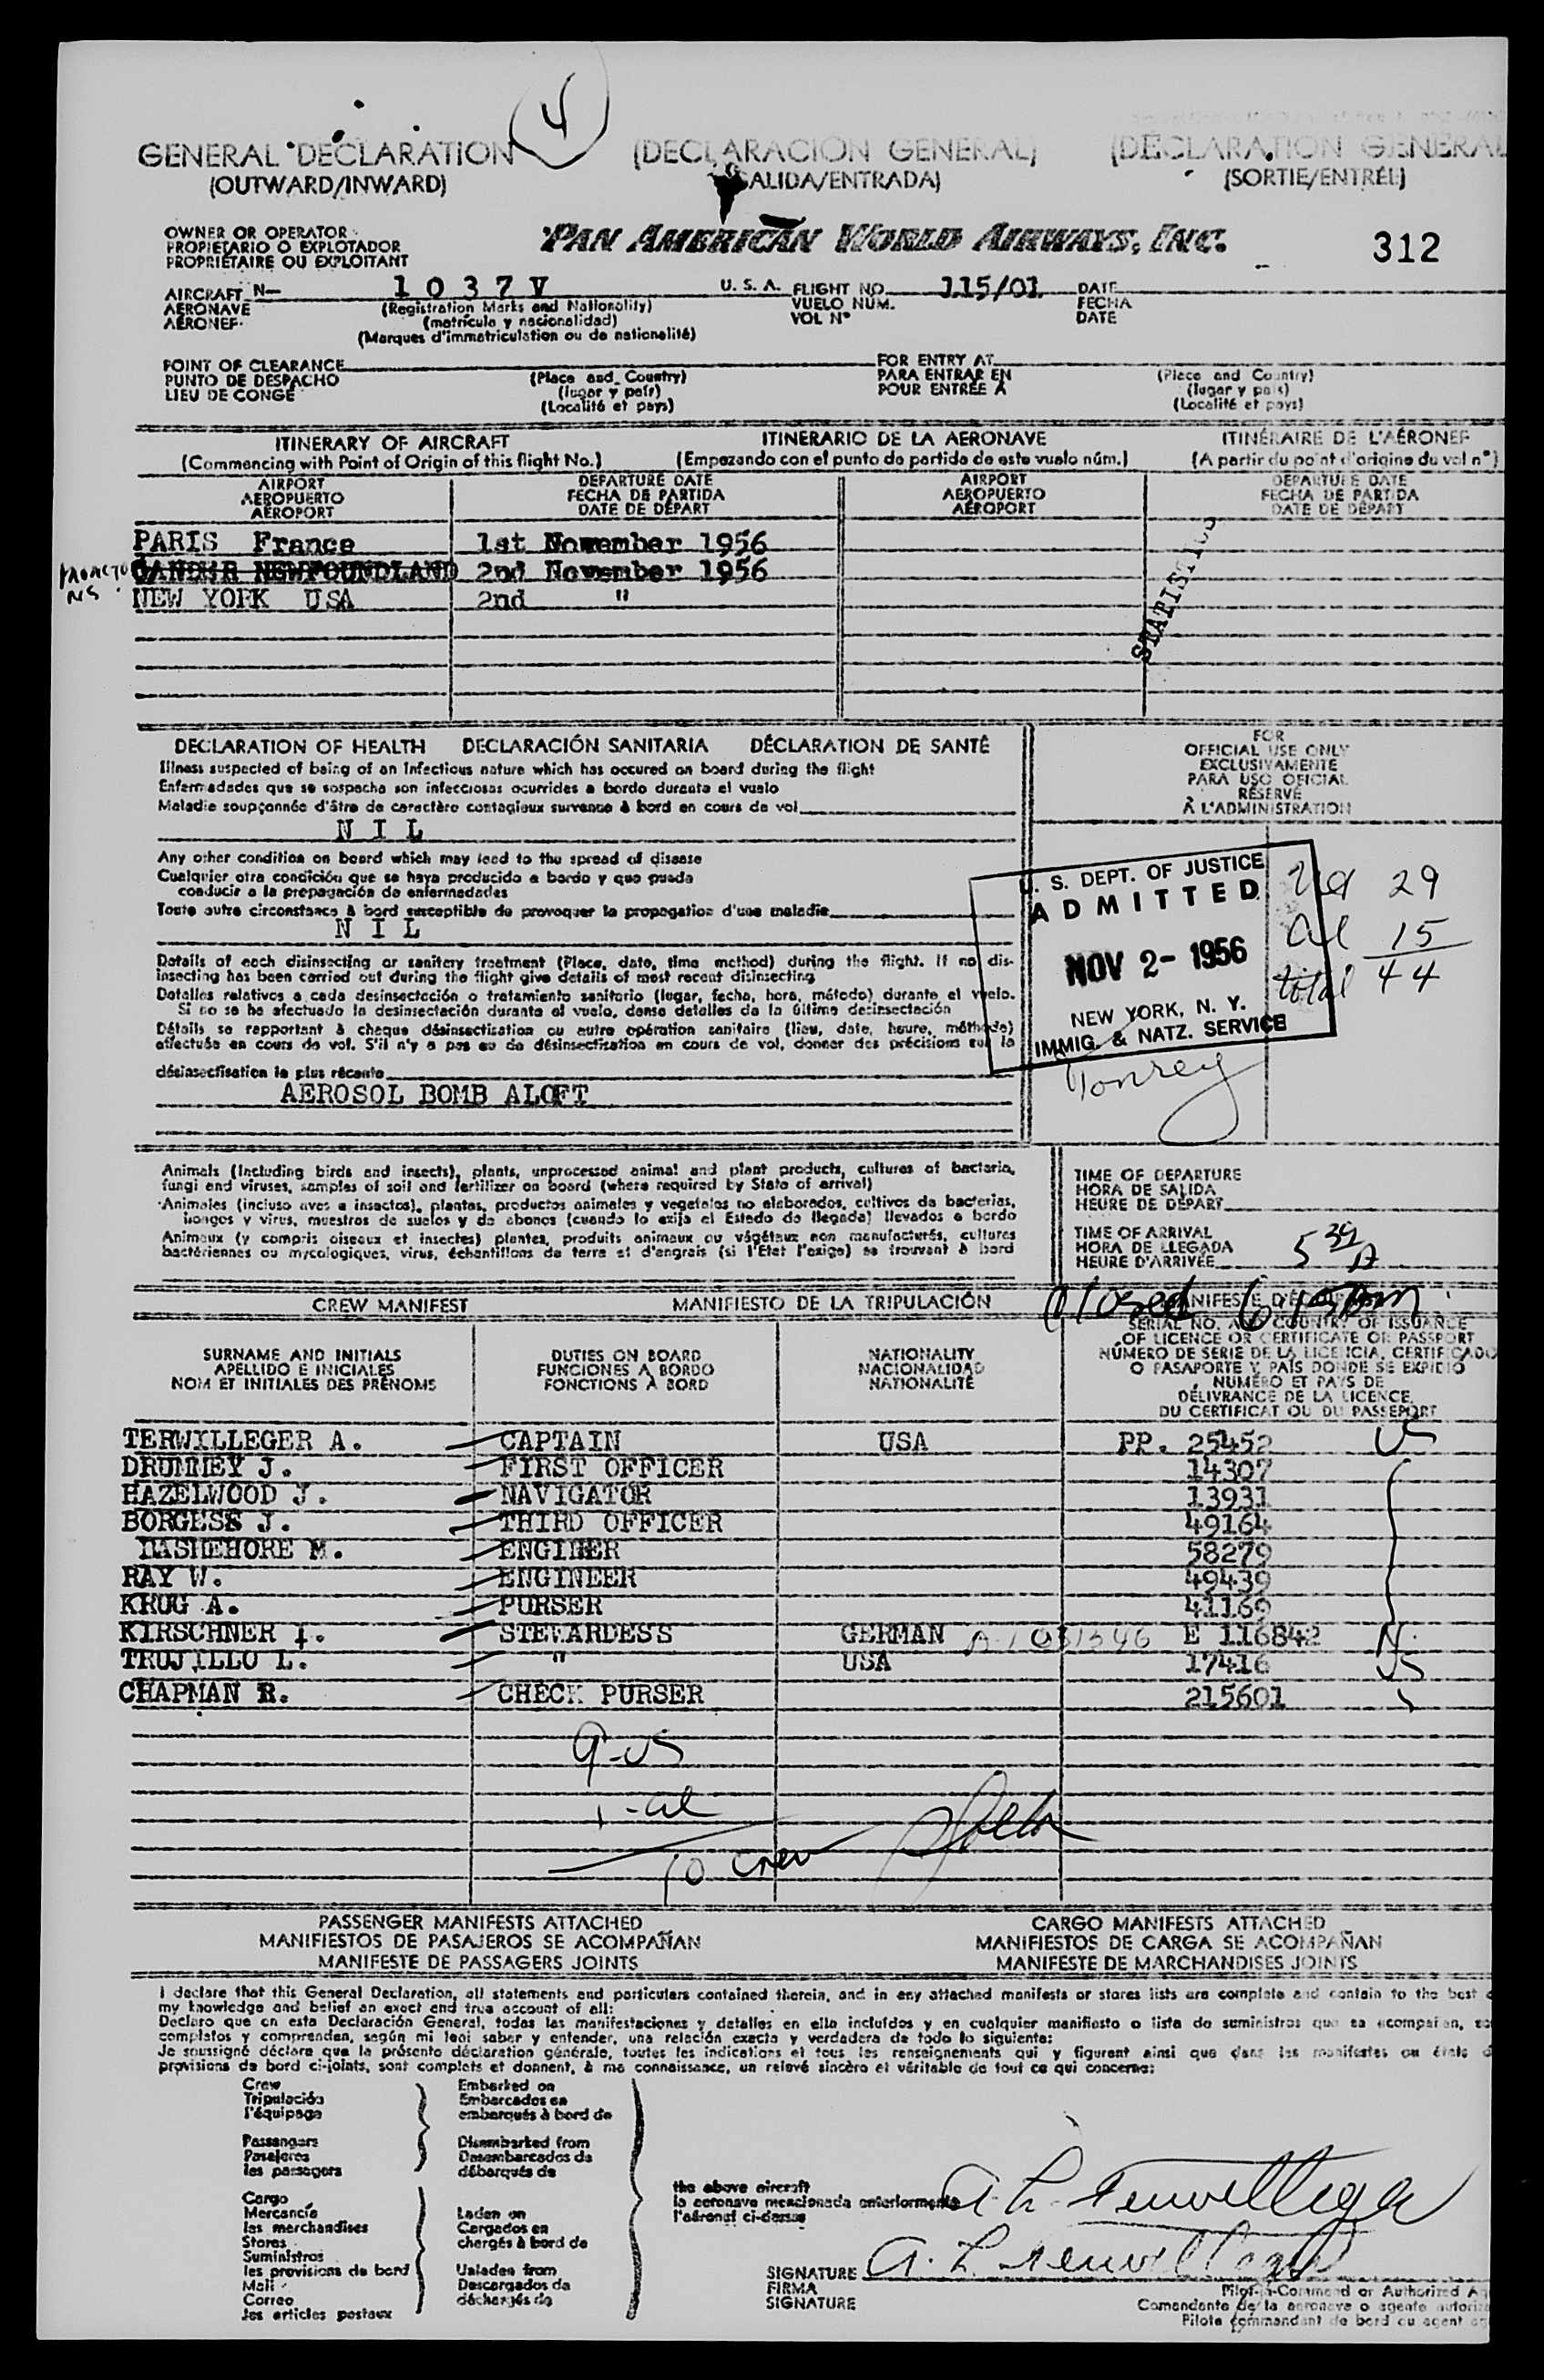 4
GENERAL DECLARATION (DECLARACION GENERAL) (DÉCLARATION GENERAL
(OUTWARD/INWARD) SALIDA/ENTRADA) (SORTIE/ENTRÉE)
OWNER OR OPERATOR
PROPIETARIO O EXPLOTADOR
PROPRIÉTAIRE OU EXPLOITANT
PAN AMERICAN WORLD AIRWAYS, INC. 312
AIRCRAFT N— 1 0 3 7 V U. S. A. FLIGHT NO. 115/01 DATE
AERONAVE (Registration Marks and Nationality) VUELO NÚM. FECHA
AÉRONEF (matrícula y nacionalidad) VOL Nº DATE
(Marques d'immatriculation ou de nationalité)
POINT OF CLEARANCE FOR ENTRY AT
PUNTO DE DESPACHO (Place and Country) PARA ENTRAR EN (Place and Country)
LIEU DE CONGÉ (lugar y país) POUR ENTRÉE À (lugar y país)
(Localité et pays) (Localité et pays)
ITINERARY OF AIRCRAFT ITINERARIO DE LA AERONAVE ITINÉRAIRE DE L'AÉRONEF
(Commencing with Point of Origin of this flight No.) (Empezando con el punto de partida de este vuelo núm.) (A partir du point d'origine du vol nº)
AIRPORT DEPARTURE DATE AIRPORT DEPARTURE DATE
AEROPUERTO FECHA DE PARTIDA AEROPUERTO FECHA DE PARTIDA
AÉROPORT DATE DE DÉPART AÉROPORT DATE DE DÉPART
PARIS France 1st November 1956
GANDER NEWFOUNDLAND 2nd November 1956
NS
NEW YORK USA 2nd "
STATISTICS
DECLARATION OF HEALTH DECLARACIÓN SANITARIA DÉCLARATION DE SANTÉ
Illness suspected of being of an infectious nature which has occured on board during the flight
Enfermedades que se sospecha son infecciosas ocurridas a bordo durante el vuelo
Maladie soupçonnée d'être de caractère contagieux survenue à bord en cours de vol
N I L
Any other condition on board which may lead to the spread of disease
Cualquier otra condición que se haya producido a bordo y que pueda
conducir a la propagación de enfermedades
Toute autre circonstance à bord susceptible de provoquer la propagation d'une maladie
N I L
Details of each disinsecting or sanitary treatment (Place, date, time method) during the flight. If no dis-
insecting has been carried out during the flight give details of most recent disinsecting
Detalles relativos a cada desinsectación o tratamiento sanitario (lugar, fecha, hora, método) durante el vuelo.
Si no se ha efectuado la desinsectación durante el vuelo, dense detalles de la última desinsectación
Détails se rapportant à chaque désinsectisation ou autre opération sanitaire (lieu, date, heure, méthode)
effectuée en cours de vol. S'il n'y a pas eu de désinsectisation en cours de vol, donner des précisions sur la
désinsectisation la plus récente
AEROSOL BOMB ALOFT
FOR
OFFICIAL USE ONLY
EXCLUSIVAMENTE
PARA USO OFICIAL
RÉSERVÉ
À L'ADMINISTRATION
U. S. DEPT. OF JUSTICE
ADMITTED
NOV 2- 1956
NEW YORK, N. Y.
IMMIG. & NATZ. SERVICE
29
al 15
total 44
Animals (Including birds and insects), plants, unprocessed animal and plant products, cultures of bacteria,
fungi and viruses, samples of soil and fertilizer on board (where required by State of arrival)
Animales (incluso aves e insectos), plantas, productos animales y vegetales no elaborados, cultivos de bacterias,
hongos y virus, muestras de suelos y de abonos (cuando lo exija el Estado de llegada) llevados a bordo
Animaux (y compris oiseaux et insectes) plantes, produits animaux ou végétaux non manufacturés, cultures
bactériennes ou mycologiques, virus, échantillons de terre et d'engrais (si l'Etat l'exige) se trouvant à bord
TIME OF DEPARTURE
HORA DE SALIDA
HEURE DE DÉPART
TIME OF ARRIVAL
HORA DE LLEGADA
HEURE D'ARRIVÉE
Closed 6 15 pm
CREW MANIFEST MANIFIESTO DE LA TRIPULACIÓN
SURNAME AND INITIALS
APELLIDO E INICIALES
NOM ET INITIALES DES PRÉNOMS
DUTIES ON BOARD
FUNCIONES A BORDO
FONCTIONS À BORD
NATIONALITY
NACIONALIDAD
NATIONALITÉ
SERIAL NO. AND COUNTRY OF ISSUANCE
OF LICENCE OR CERTIFICATE OR PASSPORT
NÚMERO DE SERIE DE LA LICENCIA, CERTIFICADO
O PASAPORTE Y PAÍS DONDE SE EXPIDIÓ
NUMÉRO ET PAYS DE
DÉLIVRANCE DE LA LICENCE,
DU CERTIFICAT OU DU PASSEPORT
TERWILLEGER A. CAPTAIN USA PP. 25452 US
DRUMMEY J. FIRST OFFICER 14307
HAZELWOOD J. NAVIGATOR 13931
BORGESS J. THIRD OFFICER 49164
M. ENGINEER 58279
RAY W. ENGINEER 49439
KRUG A. PURSER 41169
KIRSCHNER I. STEWARDESS GERMAN E 116842 N.
TRUJILLO L. " USA 17416 US
CHAPMAN R. CHECK PURSER 215601
9-US
1-al
10 crew
PASSENGER MANIFESTS ATTACHED CARGO MANIFESTS ATTACHED
MANIFIESTOS DE PASAJEROS SE ACOMPAÑAN MANIFIESTOS DE CARGA SE ACOMPAÑAN
MANIFESTE DE PASSAGERS JOINTS MANIFESTE DE MARCHANDISES JOINTS
I declare that this General Declaration, all statements and particulars contained therein, and in any attached manifests or stores lists are complete and contain to the best
my knowledge and belief an exact and true account of all:
Declaro que en esta Declaración General, todas las manifestaciones y detalles en ella incluídos y en cualquier manifiesto o lista de suministros que se acompañan,
completos y comprenden, según mi leal saber y entender, una relación exacta y verdadera de todo lo siguiente:
Je soussigné déclare que la présente déclaration générale, toutes les indications et tous les renseignements qui y figurent ainsi que dans les manifestes ou états
provisions de bord ci-joints, sont complets et donnent, à ma connaissance, un relevé sincère et véritable de tout ce qui concerne:
Crew Embarked on
Tripulación Embarcados en
l'équipage embarqués à bord de
Passengers Disembarked from
Pasajeros Desembarcados de
les passagers débarqués de
Cargo
Mercancía Laden on
les marchandises Cargados en
Stores chargés à bord de
Suministros
les provisions de bord Unladen from
Mail Descargados de
Correo déchargés de
les articles postaux
the above aircraft
la aeronave mencionada anteriormente
l'aéronef ci-dessus
A. L. Terwilleger
SIGNATURE A. L. Terwilleger
FIRMA Pilot-in-Command or Authorized
SIGNATURE Comandante de la aeronave o agente
Pilote commandant de bord ou agent